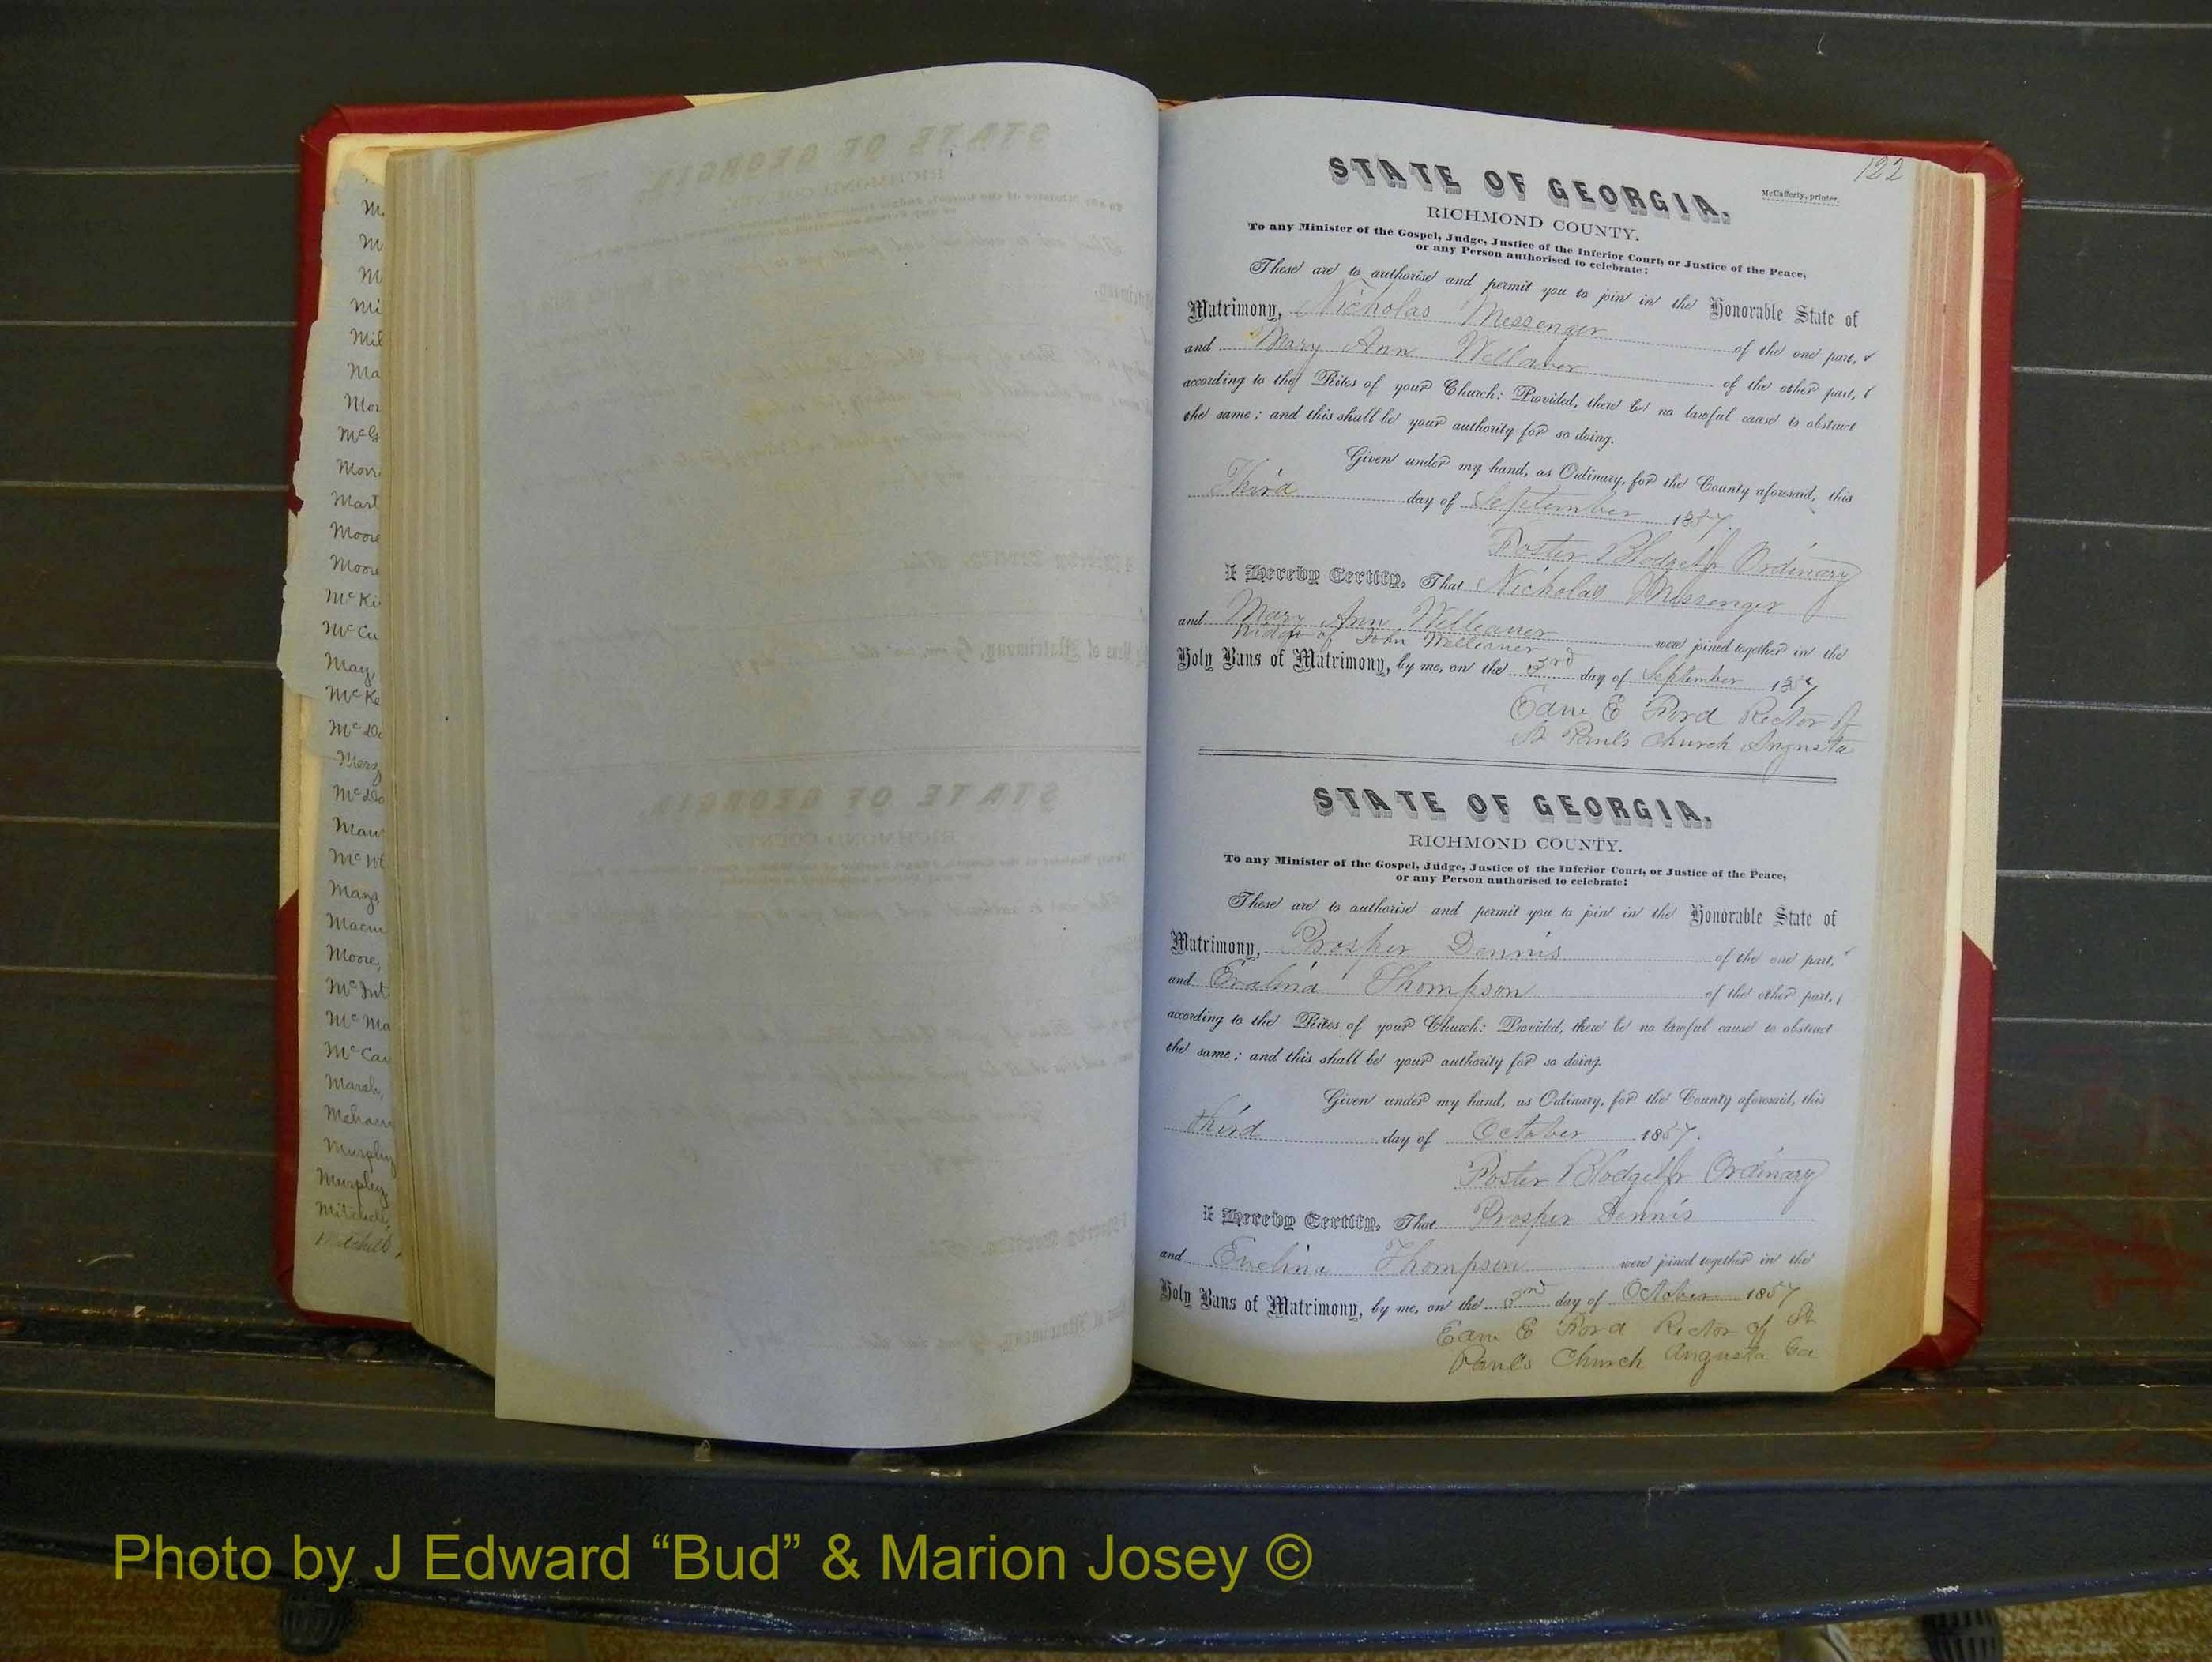 M
M
M
Mi
Mil
Ma
Mor
McG
Morr
Mart
Moore
Moore
McKi
McCu
May,
McKe
McDo
McDo
McW
Mays
Moore,
McInt
McMa
McCar
Murphy
Murphy
Mitchell,
Mitchell,
122
STATE OF GEORGIA.
McCafferty, printer.
RICHMOND COUNTY.
To any Minister of the Gospel, Judge, Justice of the Inferior Court, or Justice of the Peace,
or any Person authorised to celebrate:
These are to authorise and permit you to join in the Honorable State of
Matrimony, Nicholas Messenger of the one part,
and Mary Ann Welleaver of the other part,
according to the Rites of your Church: Provided, there be no lawful cause to obstruct
the same; and this shall be your authority for so doing.
Given under my hand, as Ordinary, for the County aforesaid, this
Third day of September 1857.
Foster Blodget Jr Ordinary
I Hereby Certify, That Nicholas Messenger
and Mary Ann Welleaver were joined together in the
Widow of John Welleaver
Holy Bans of Matrimony, by me, on the 3rd day of September 1857
Edw E Ford Rector of
St Paul's Church Augusta
STATE OF GEORGIA.
RICHMOND COUNTY.
To any Minister of the Gospel, Judge, Justice of the Inferior Court, or Justice of the Peace,
or any Person authorised to celebrate:
These are to authorise and permit you to join in the Honorable State of
Matrimony, Prosper Dennis of the one part,
and Evalina Thompson of the other part,
according to the Rites of your Church: Provided, there be no lawful cause to obstruct
the same; and this shall be your authority for so doing.
Given under my hand, as Ordinary, for the County aforesaid, this
third day of October 1857.
Foster Blodget Jr Ordinary
I Hereby Certify, That Prosper Dennis
and Evelina Thompson were joined together in the
Holy Bans of Matrimony, by me, on the 3rd day of October 1857
Edw E Ford Rector of St
Paul's Church Augusta Ga
Photo by J Edward “Bud” & Marion Josey ©